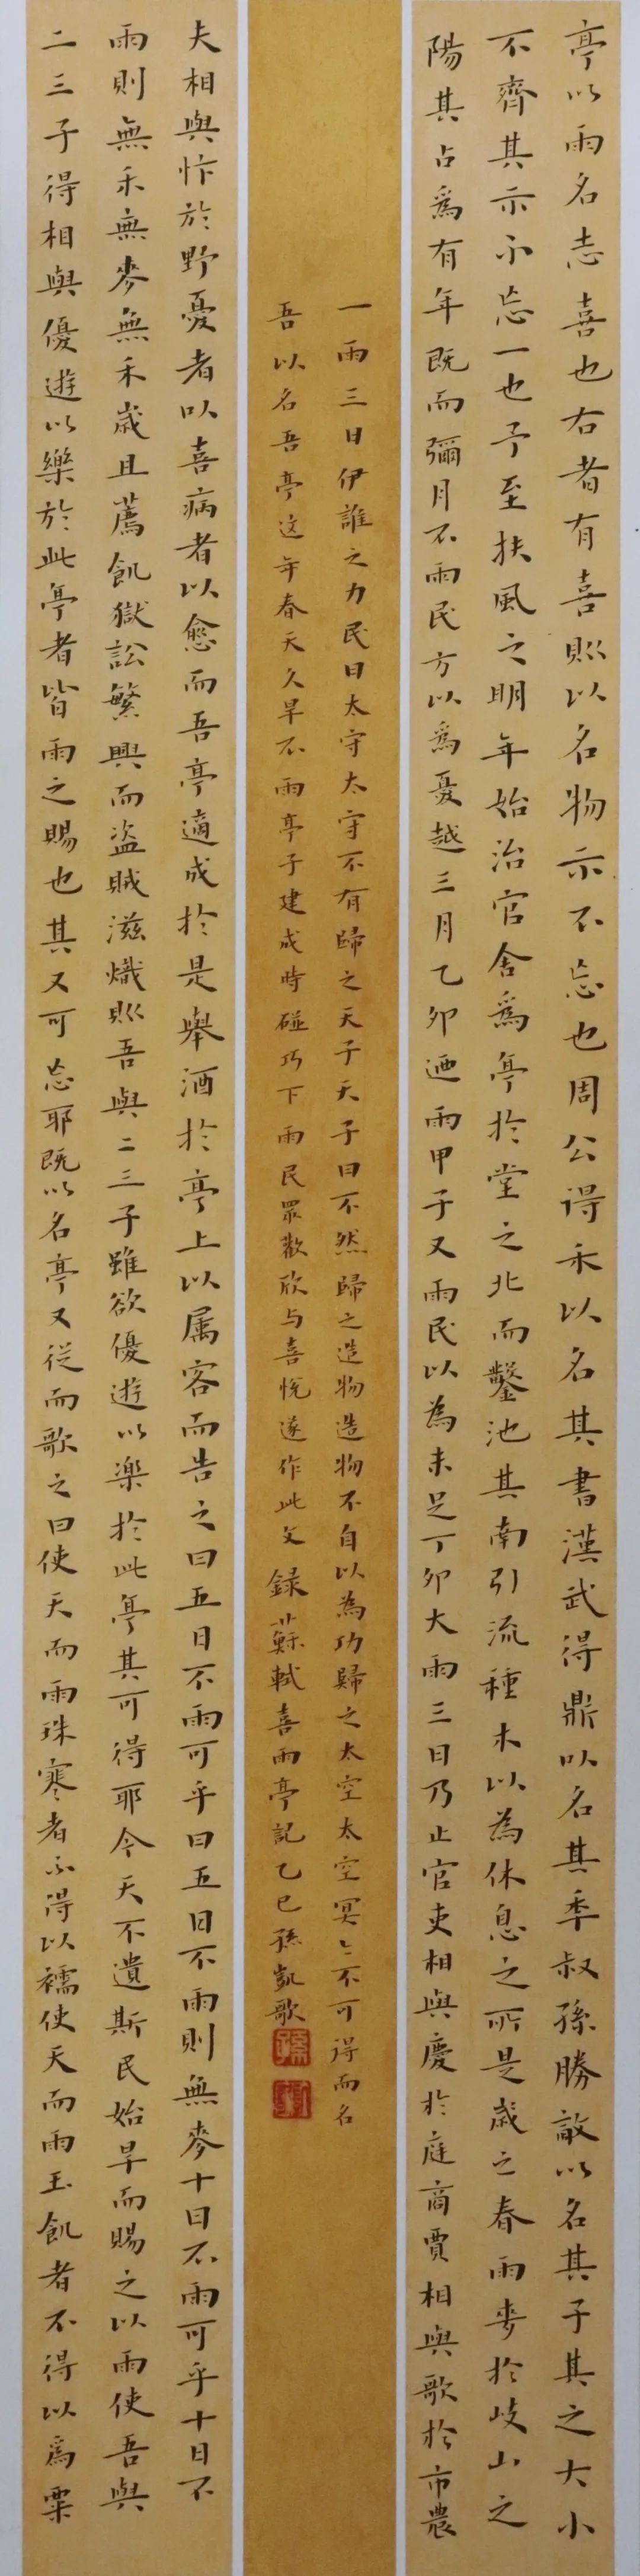 亭以雨名志喜也右者有喜則以名物示不忘也周公得禾以名其書漢武得鼎以名其年叔孫勝敵以名其子其之大小
不齊其示不忘一也予至扶風之明年始治官舍爲亭於堂之北而鑿池其南引流種木以為休息之所是歲之春雨麥於岐山之
陽其占爲有年既而彌月不雨民方以爲憂越三月乙卯迺雨甲子又雨民以為未足丁卯大雨三日乃止官吏相與慶於庭商賈相與歌於市農
夫相與忭於野憂者以喜病者以愈而吾亭適成於是舉酒於亭上以属客而告之曰五日不雨可乎曰五日不雨則無麥十日不雨可乎十日不
雨則無禾無麥無禾歲且薦飢獄訟繁興而盜賊滋熾則吾與二三子雖欲優遊以樂於此亭其可得耶今天不遺斯民始旱而賜之以雨使吾與
二三子得相與優遊以樂於此亭者皆雨之賜也其又可忘耶既以名亭又從而歌之曰使天而雨珠寒者不得以襦使天而雨玉飢者不得以爲粟
一雨三日伊誰之力民曰太守太守不有歸之天子天子曰不然歸之造物造物不自以為功歸之太空太空冥々不可得而名
吾以名吾亭这年春天久旱不雨亭子建成時碰巧下雨民眾歡欣与喜悅遂作此文錄蘇軾喜雨亭記乙巳孫凱歌